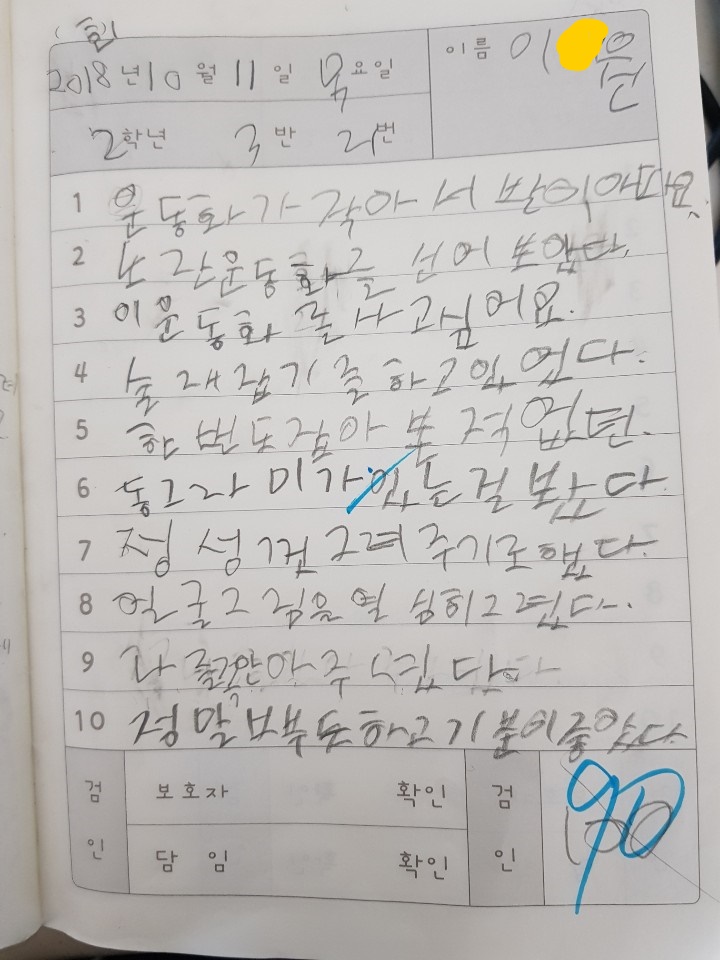 (회)
2018년 10월 11일 목요일 이름 이 윤
2학년 3반 21번 선
1 운동화가 작아서 발이 아파요.
2 노란 운동화를 신어 보았다.
3 이 운동화를 사고 싶어요.
4 술래잡기를 하고 있었다.
5 한 번도 잡아 본 적 없던.
6 동그라미가 있는 걸 봤다.
7 정성껏 그려 주기로 했다.
8 얼굴 그림을 열심히 그렸다.
9 나를 꼭 안아 주셨답니다
10 정말 뿌듯하고 기분이 좋았다
검인 보호자 확인 검인 100
담임 확인 90